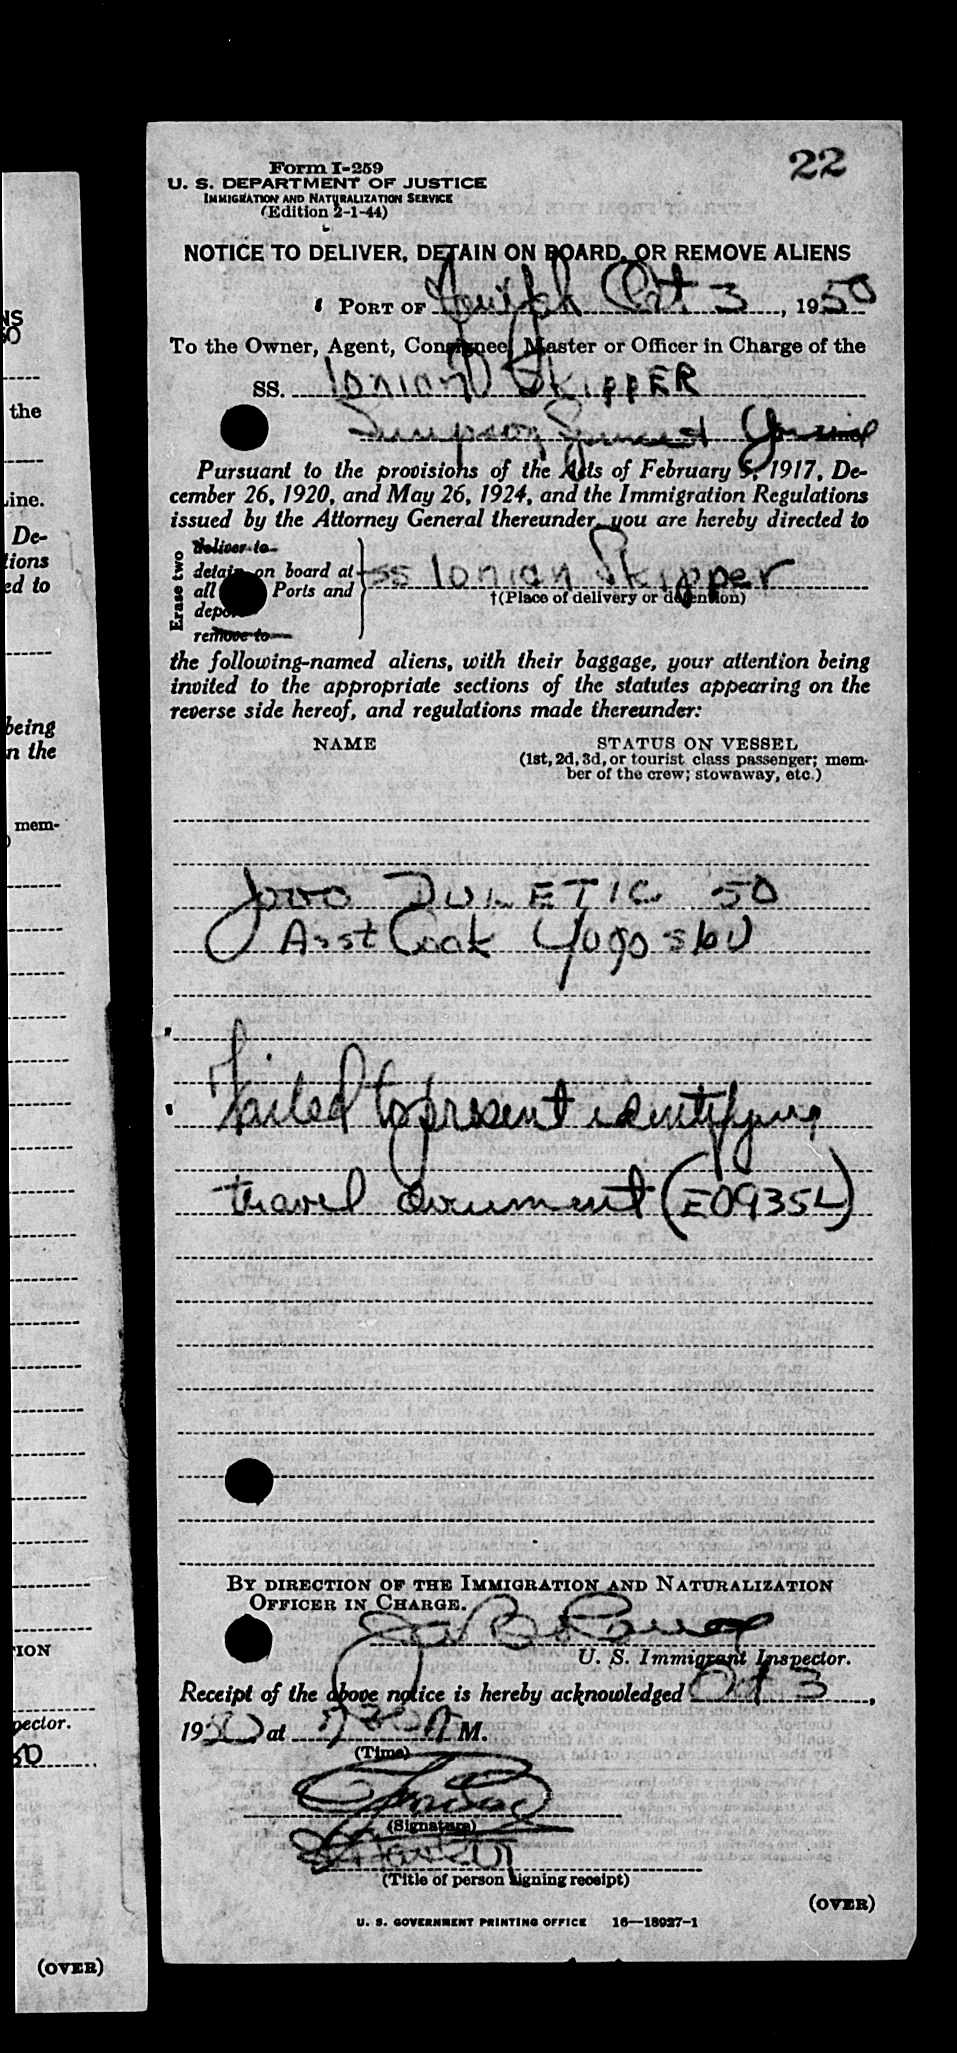 NS
50
the
Line.
De-
tions
ed to
being
n the
mem-
)
TION
pector.
50
(OVER)
22
Form I-259
U. S. DEPARTMENT OF JUSTICE
IMMIGRATION AND NATURALIZATION SERVICE
(Edition 2-1-44)
NOTICE TO DELIVER, DETAIN ON BOARD, OR REMOVE ALIENS
PORT OF Norfolk Oct 3, 1950
To the Owner, Agent, Consignee, Master or Officer in Charge of the
SS. Ionian SKIPPER
Simpson
Line.
Pursuant to the provisions of the Acts of February 5, 1917, De-
cember 26, 1920, and May 26, 1924, and the Immigration Regulations
issued by the Attorney General thereunder, you are hereby directed to
Erase two
deliver to
detain on board at
all Ports and
deport
remove to
SS Ionian Skipper
†(Place of delivery or detention)
the following-named aliens, with their baggage, your attention being
invited to the appropriate sections of the statutes appearing on the
reverse side hereof, and regulations made thereunder:
NAME STATUS ON VESSEL
(1st, 2d, 3d, or tourist class passenger; mem-
ber of the crew; stowaway, etc.)
Jovo DULETIC 50
Asst Cook Yugoslav
Failed to present identifying
travel document (E0935L)
BY DIRECTION OF THE IMMIGRATION AND NATURALIZATION
OFFICER IN CHARGE.
U. S. Immigrant Inspector.
Receipt of the above notice is hereby acknowledged Oct 3,
1950 at M.
(Time)
(Signature)
(Title of person signing receipt)
(OVER)
U. S. GOVERNMENT PRINTING OFFICE 16—18927-1